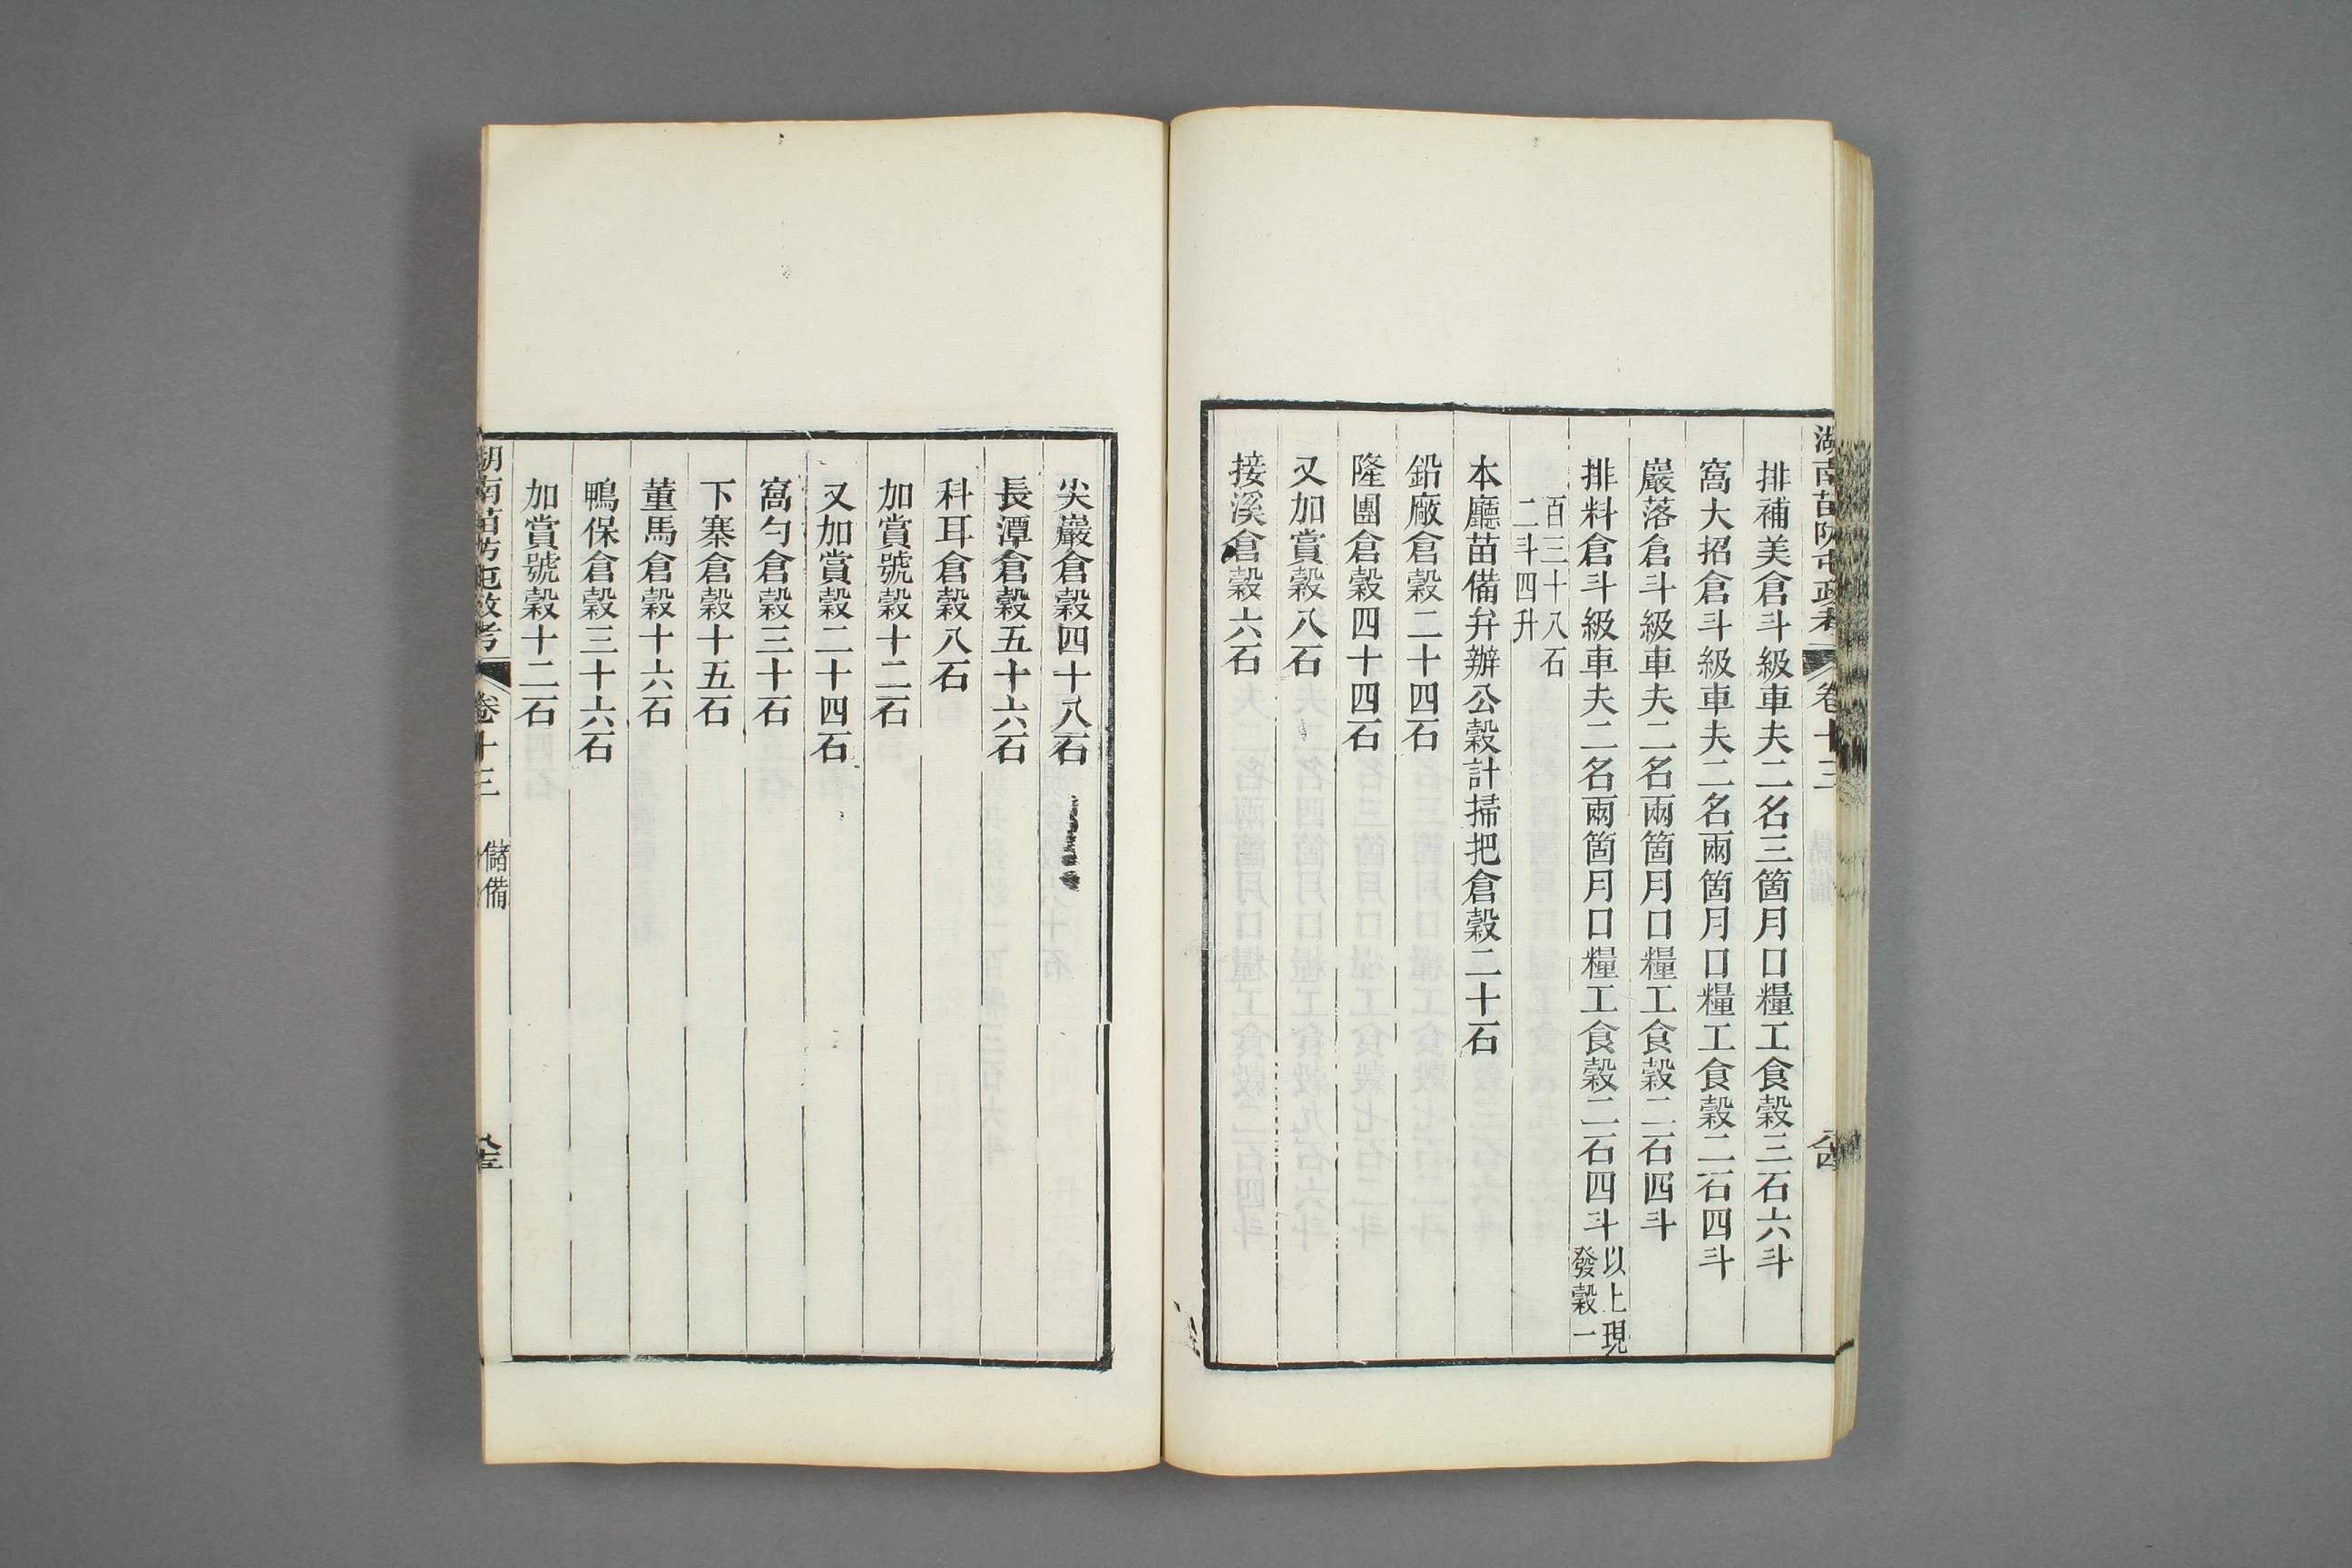 湖南苗防屯政考 卷十三 儲備 八四
排補美倉斗級車夫二名三箇月口糧工食穀三石六斗
窩大招倉斗級車夫二名兩箇月口糧工食穀二石四斗
巖落倉斗級車夫二名兩箇月口糧工食穀二石四斗
排料倉斗級車夫二名兩箇月口糧工食穀二石四斗 以上現發穀一
百三十八石二斗四升
本廳苗備弁辦公穀計掃把倉穀二十石
鉛廠倉穀二十四石
隆團倉穀四十四石
又加賞穀八石
接溪倉穀六石
尖巖倉穀四十八石
長潭倉穀五十六石
科耳倉穀八石
加賞號穀十二石
又加賞穀二十四石
窩勺倉穀三十石
下寨倉穀十五石
董馬倉穀十六石
鴨保倉穀三十六石
加賞號穀十二石
湖南苗防屯政考 卷十三 儲備 八五